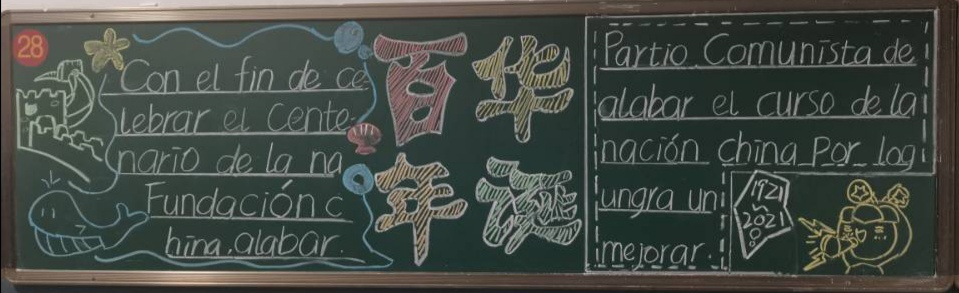 28
Con el fin de ce
lebrar el Cente-
nario de la na
Fundación c
hina, alabar.
百华
年诞
Partio Comunista de
alabar el curso de la
nación china Por log
ungra un
mejorar.
1921
2021